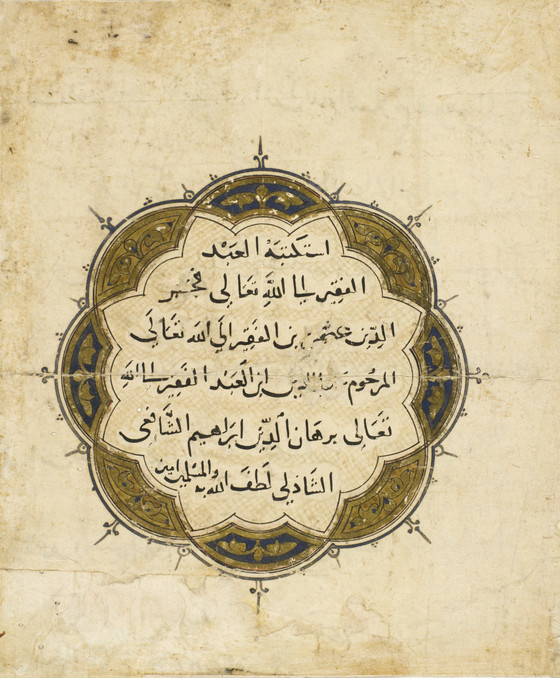 استكتبه العبد
الفقير الى الله تعالى فخر
الدين عثمن بن الفقير الى الله تعالى
المرحوم الدين ابن العبد الفقير الى الله
تعالى برهان الدين ابراهيم الشافعى
الشاذلي لطف الله به والمسلمين امين